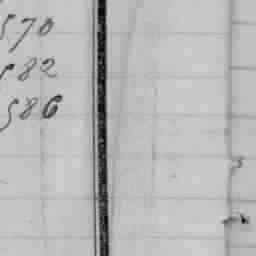 570
582
586